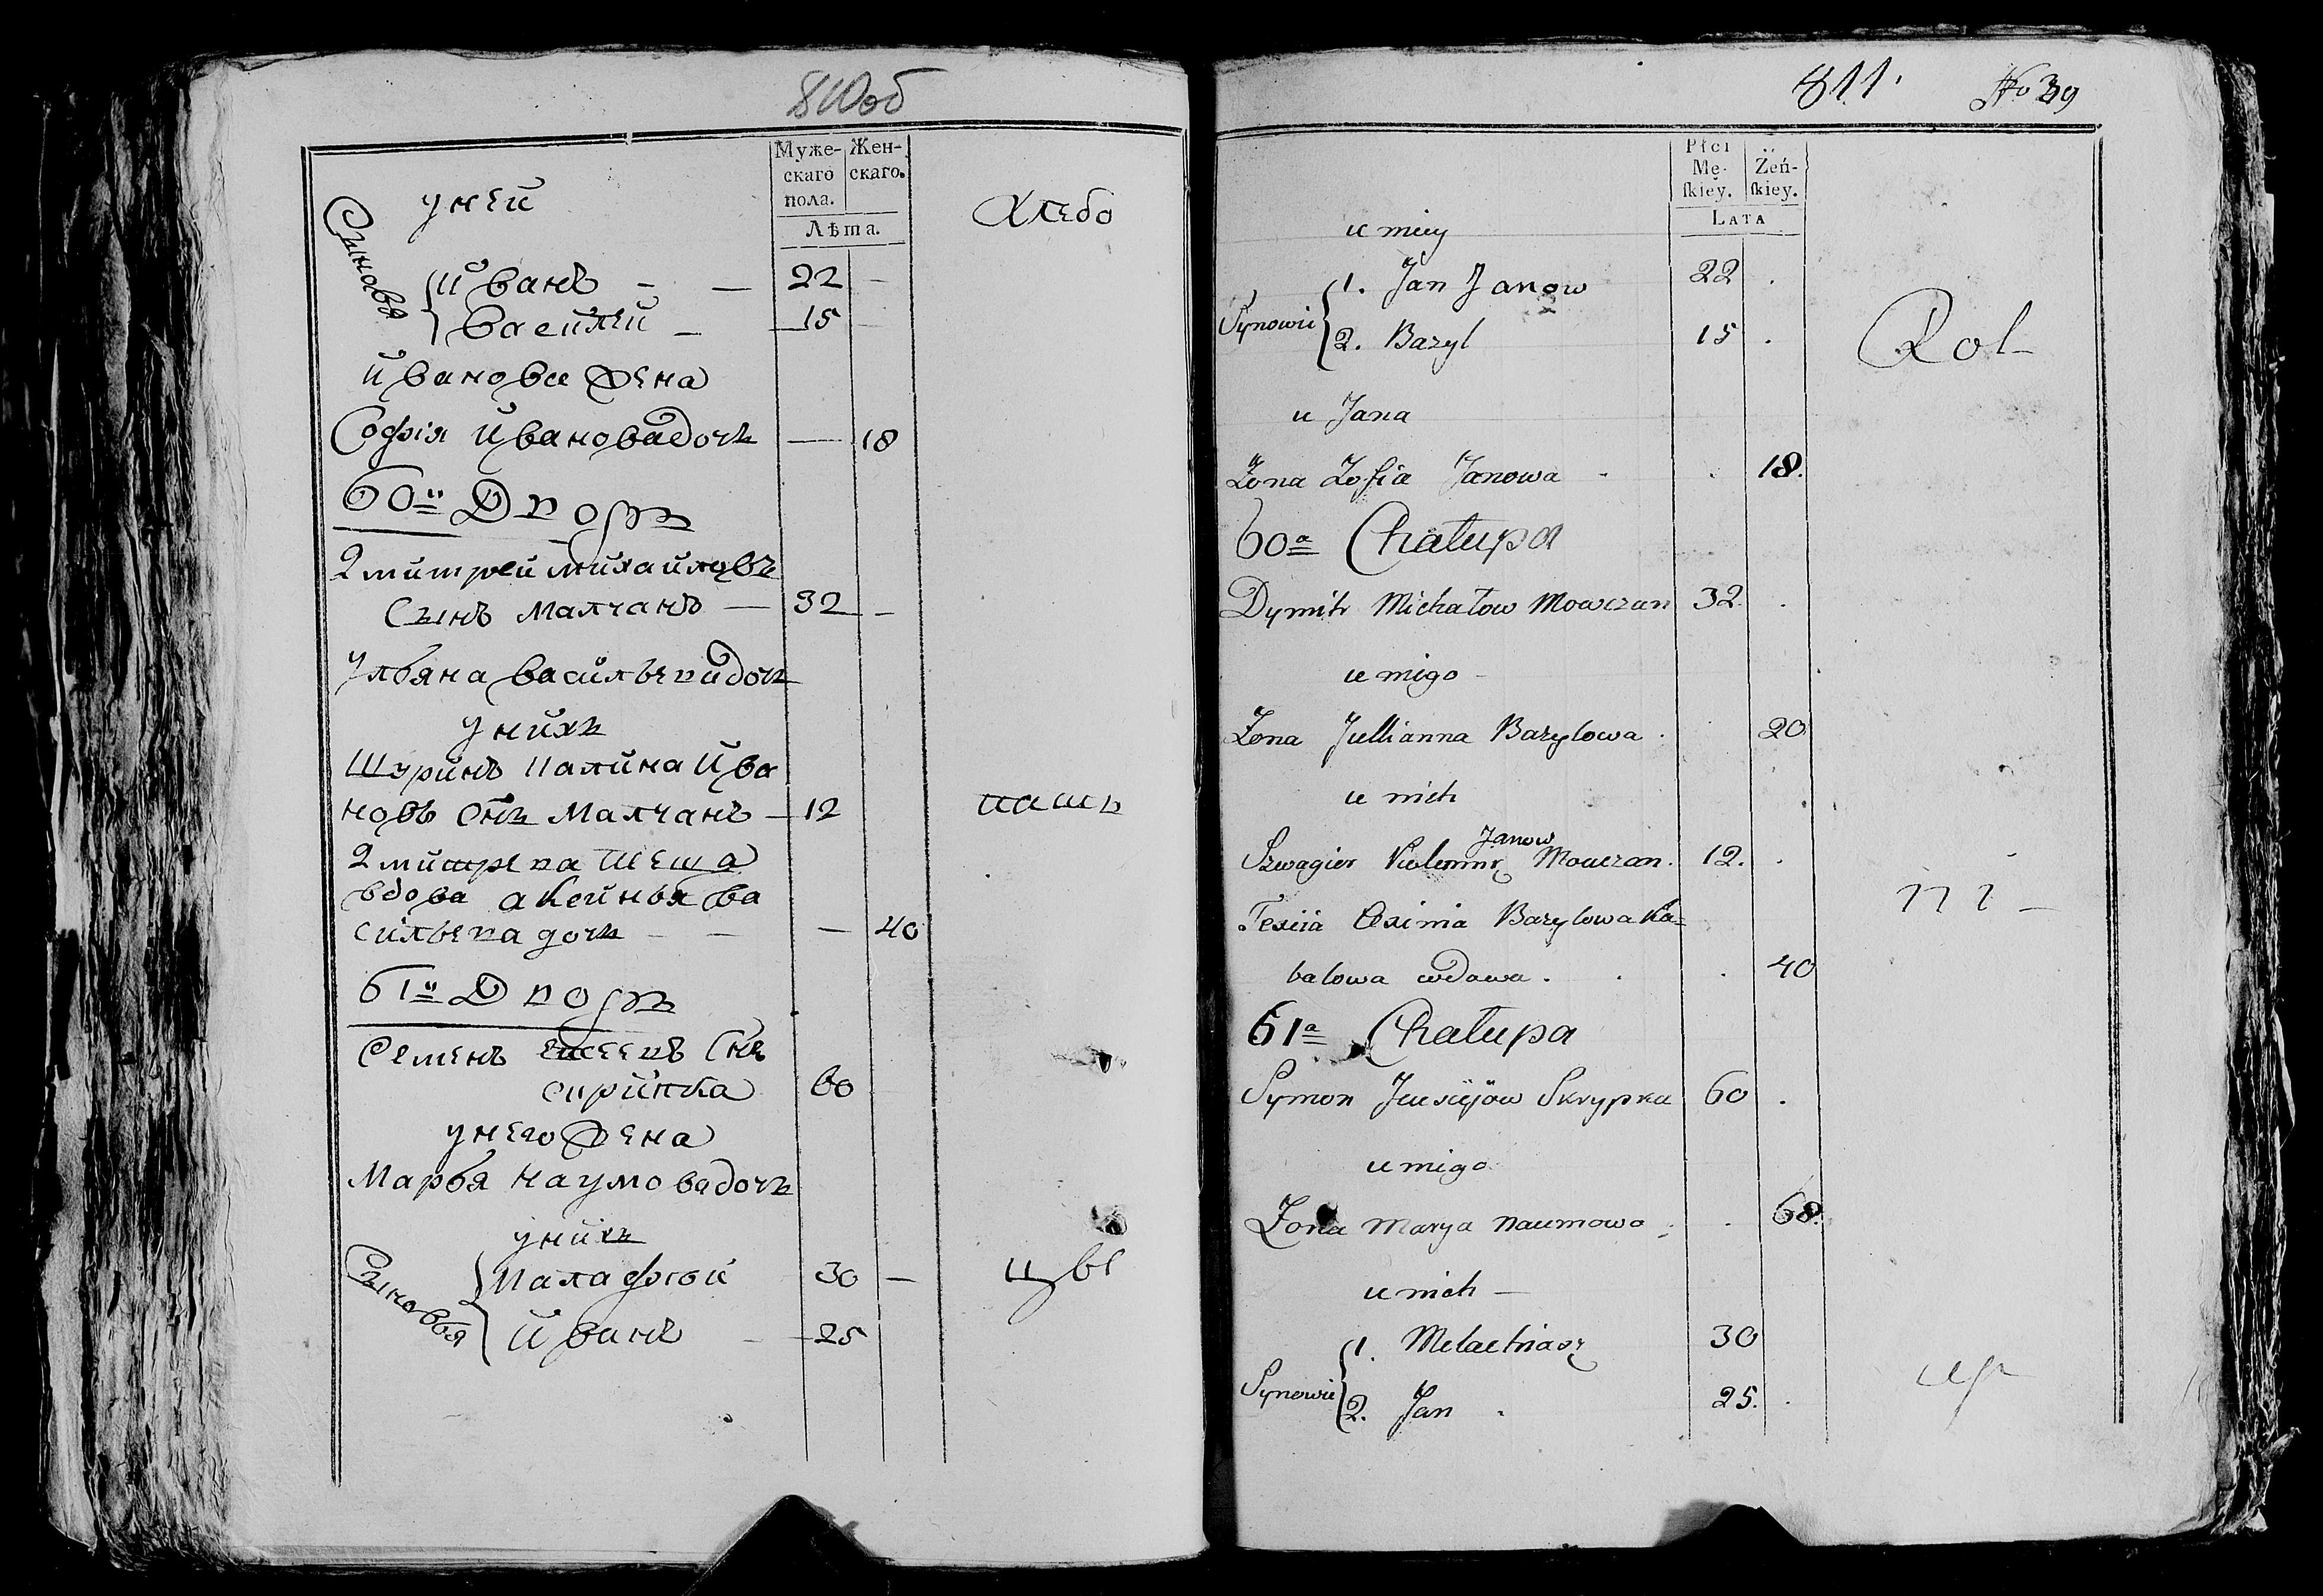 810об
Муже-
скаго
пола.
Жен-
скаго.
Лѣта.
уней
Хлебо
Сыновья
Иванъ - — 22 -
василей — 15 -
Ивановa жена
Софія Ивановадочь — 18
60й Дворъ
Дмитрей михайловъ
Сынъ Малчанъ — 32 -
Ульяна васильевадочь
унихъ
Шуринъ Ива
новъ снъ Малчанъ — 12
пашь
Дмитрева теща
вдова аксинья ва
сильева дочь - — — 40
61й Дворъ
Семенъ снъ
скрипка 60
унего жена
Марья наумовадочь
унихъ
Сыновья
Малафей 30 —
цы
Иванъ - 25
811.
No 39
Płci
Mę-
ſkiey.
Żeń-
ſkiey.
LATA
u niey
Synowie
1. Jan Janow 22 .
2. Bazyl 15 .
Rol-
u Jana
Żona Zofia Janowa - . 18.
60a Chałupa
Dymitr Michałow Mowczan 32 .
u niego -
Żona Jullianna Bazylowa . 20
u nich
Janow
Szwagier Mowczan. 12. .
ni -
Teścia Axinia Bazylowa Ka=
balowa wdowa . . . 40
61a Chałupa
Symon Skrypka 60 .
u niego
Żona Marya Naumowa . 68.
u nich —
Synowie
1. 30
2. Jan . 25. .
cy